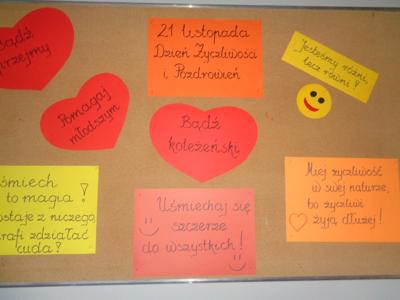 Bądź
przejmy
21 listopada
Dzień Życzliwości
i Pozdrowień
Jesteśmy różni,
lecz równi!
Pomagaj
młodszym
Bądź
koleżeński
śmiech
to magia!
staje z niczego,
rafi zdziałać
cuda?
Uśmiechaj się
szczerze
do wszystkich!
Miej życzliwość
w swej naturze,
bo życzliwi
żyją dłużej!